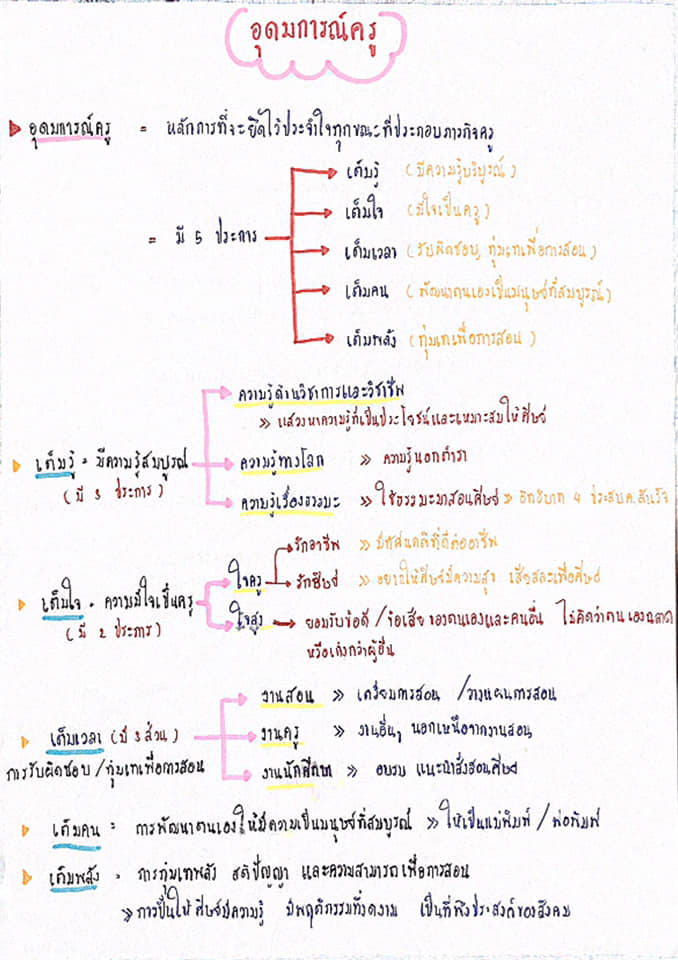 อุดมการณ์ครู
อุดมการณ์ครู = หลักการที่จะยึดไว้ประจำใจทุกขณะที่ประกอบภารกิจครู
= มี 5 ประการ
เต็มรู้ (มีความรู้บริบูรณ์)
เต็มใจ (มีใจเป็นครู)
เต็มเวลา (รับผิดชอบ, ทุ่มเทเพื่อการสอน)
เต็มคน (พัฒนาตนเองเป็นมนุษย์ที่สมบูรณ์)
เต็มพลัง (ทุ่มเทเพื่อการสอน)
เต็มรู้ = มีความรู้สมบูรณ์
(มี 3 ประการ)
ความรู้ด้านวิชาการและวิชาชีพ
» แสวงหาความรู้ที่เป็นประโยชน์และเหมาะสมให้ศิษย์
ความรู้ทางโลก » ความรู้นอกตำรา
ความรู้เรื่องธรรมะ » ใช้ธรรมะมาสอนศิษย์ » อิทธิบาท 4 ประสบค.สำเร็จ
เต็มใจ = ความมีใจเป็นครู
(มี 2 ประการ)
ใจครู
รักอาชีพ » มีทัศนคติที่ดีต่ออาชีพ
รักศิษย์ » อยากให้ศิษย์มีความสุข เสียสละเพื่อศิษย์
ใจสูง ยอมรับข้อดี / ข้อเสีย ของตนเองและคนอื่น ไม่คิดว่าตนเองฉลาด
หรือเก่งกว่าผู้อื่น
เต็มเวลา (มี 3 ส่วน)
การรับผิดชอบ / ทุ่มเทเพื่อการสอน
งานสอน » เตรียมการสอน / วางแผนการสอน
งานครู » งานอื่นๆ นอกเหนือจากงานสอน
งานนักศึกษา » อบรม แนะนำสั่งสอนศิษย์
เต็มคน = การพัฒนาตนเองให้มีความเป็นมนุษย์ที่สมบูรณ์ » ให้เป็นแม่พิมพ์ / พ่อพิมพ์
เต็มพลัง = การทุ่มเทพลัง สติปัญญา และความสามารถเพื่อการสอน
» การปั้นให้ศิษย์มีความรู้ มีพฤติกรรมที่งดงาม เป็นที่พึงประสงค์ของสังคม